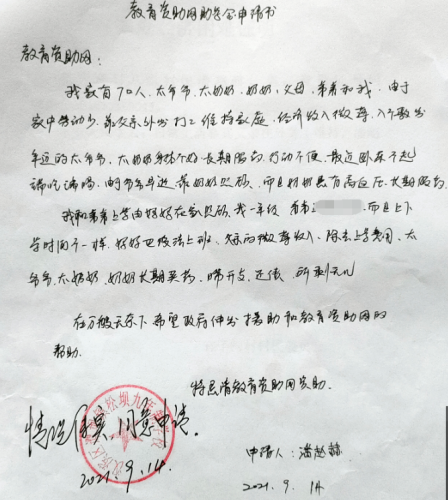 教育资助网助学金申请书
教育资助网：
我家有7口人，太爷爷、太奶奶、奶奶、父母、弟弟和我。由于
家中劳动少，靠父亲外出打工维持家庭，经济收入微薄，入不敷出
年迈的太爷爷、太奶奶身体不好长期服药，行动不便，最近卧床不起
需吃，由，靠奶奶照顾，而且奶奶患有高血压，长期服药。
我和弟弟上学由妈妈在家照顾，我一年级，弟弟，而且上下
学时间不一样，妈妈也没法上班，父亲的微薄收入，除去上学费用、太
爷爷、太奶奶、奶奶长期买药，日常开支，还债，所剩无几
在万般无奈下希望政府伸出援助和教育资助网的
帮助。
特恳请教育资助网资助。
情况属实，同意申请。
松坝九年
申请人：潘赵
2021.9.14
2021.9.14